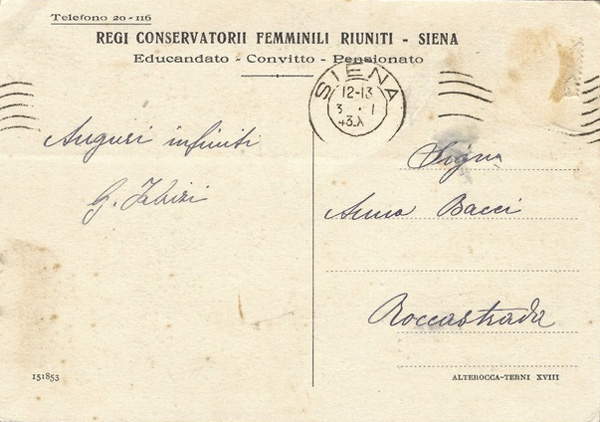 Telefono 20-116
REGI CONSERVATORII FEMMINILI RIUNITI - SIENA
Educandato - Convitto - Pensionato
SIENA
12-13
3 . 1
43.X
Auguri infiniti
G. Fabizi
Sigra
Anna Bacci
Roccastrada
151853
ALTEROCCA-TERNI XVIII